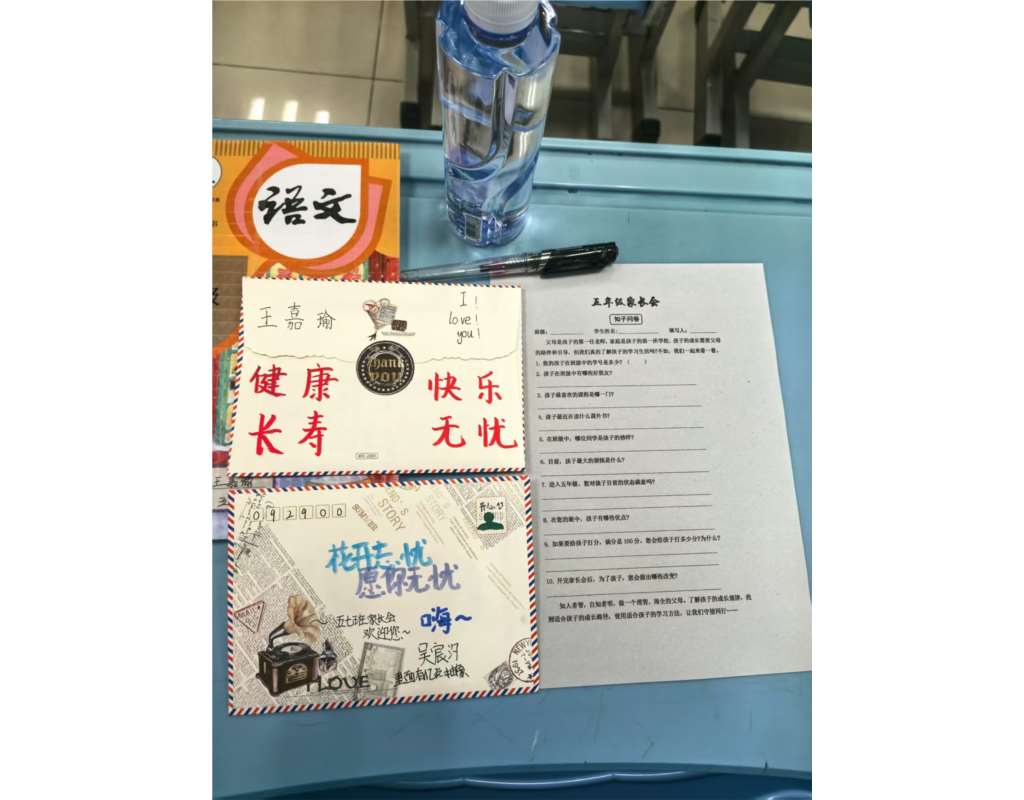 语文
级
王嘉瑜
I!
love!
you!
THANK
YOU
健康
长寿
快乐
无忧
王嘉瑜
092900
SUMMER
STORY
开心
花开忘忧
愿你无忧
五七班家长会
欢迎您~
嗨~
吴宸汐
I LOVE
五年级家长会
知子问卷
班级:____ 学生姓名:____ 填写人:____
父母是孩子的第一任老师，家庭是孩子的第一所学校。孩子的成长需要父母
的陪伴和引导，但我们真的了解孩子的学习生活吗?不如，我们一起来看一看。
1. 您的孩子在班级中的学号是多少?（ ）
2. 孩子在班级中有哪些好朋友?
3. 孩子最喜欢的课程是哪一门?
4. 孩子最近在读什么课外书?
5. 在班级中，哪位同学是孩子的榜样?
6. 目前，孩子最大的烦恼是什么?
7. 进入五年级，您对孩子目前的状态满意吗?
8. 在您的眼中，孩子有哪些优点?
9. 如果要给孩子打分，满分是 100 分，您会给孩子打多少分?为什么?
10. 开完家长会后，为了孩子，您会做出哪些改变?
知人者智，自知者明。做一个清醒、周全的父母，了解孩子的成长规律，找
到适合孩子的成长路径，使用适合孩子的学习方法，让我们守望同行……